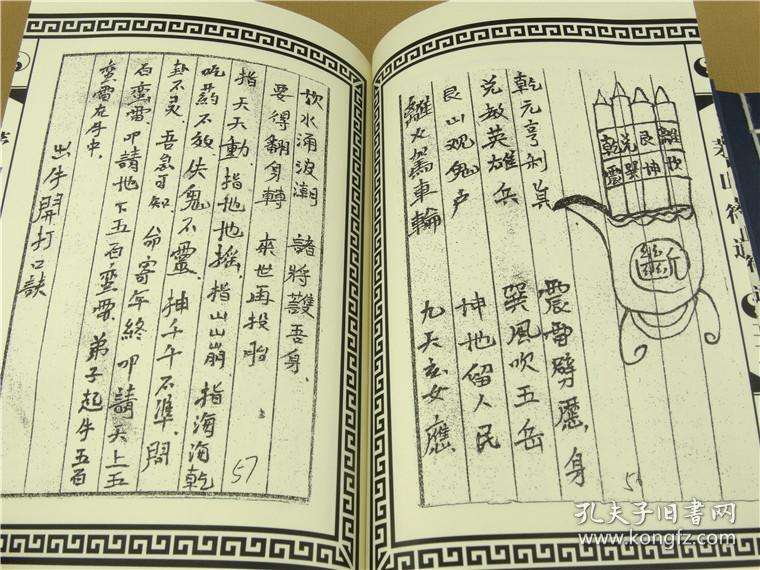 離坎
艮坤
兌巽
乾震
乾元亨利貞 震雷劈歷身
兌 英雄兵 巽風吹五岳
艮山观鬼户 坤地留人民
離火駕車輪 九天玄女應
坎水涌波潮 諸將護吾身、
要得翻身轉 來世再投胎
指天天動、指地地搖、指山山崩 指海海乾
吃药不 失鬼不靈、 千 不準、問
卦不灵、吾 可知、命寄年終 叩請天上五
百蛮雷、叩請地下五百蛮雷 弟子起牛五百
蛮雷在牛中、
出牛開打口訣
57
孔夫子旧書网
www.kongfz.com